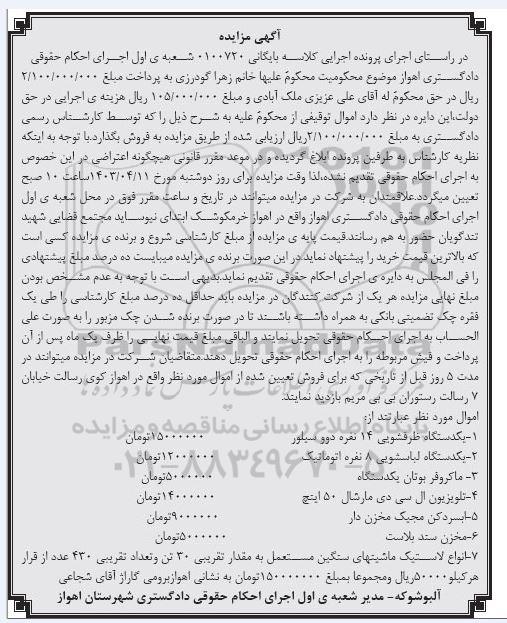 آگهی مزایده
در راستای اجرای پرونده اجرایی کلاسه بایگانی ۰۱۰۰۷۲۰ شعبه ی اول اجرای احکام حقوقی
دادگستری اهواز موضوع محکومیت محکومٌ علیها خانم زهرا گودرزی به پرداخت مبلغ ۲/۱۰۰/۰۰۰/۰۰۰
ریال در حق محکومٌ له آقای علی عزیزی ملک آبادی و مبلغ ۱۰۵/۰۰۰/۰۰۰ ریال هزینه ی اجرایی در حق
دولت،این دایره در نظر دارد اموال توقیفی از محکومٌ علیه به شرح ذیل را که توسط کارشناس رسمی
دادگستری به مبلغ ۲/۱۰۰/۰۰۰/۰۰۰ریال ارزیابی شده از طریق مزایده به فروش بگذارد.با توجه به اینکه
نظریه کارشناس به طرفین پرونده ابلاغ گردیده و در موعد مقرر قانونی هیچگونه اعتراضی در این خصوص
به اجرای احکام حقوقی تقدیم نشده،لذا وقت مزایده برای روز دوشنبه مورخ ۱۴۰۳/۰۴/۱۱ساعت ۱۰ صبح
تعیین میگردد.علاقمندان به شرکت در مزایده میتوانند در تاریخ و ساعت مقرر فوق در محل شعبه ی اول
اجرای احکام حقوقی دادگستری اهواز واقع در اهواز خرمکوشک ابتدای نیوساید مجتمع قضایی شهید
تندگویان حضور به هم رسانند.قیمت پایه ی مزایده از مبلغ کارشناسی شروع و برنده ی مزایده کسی است
که بالاترین قیمت خرید را پیشنهاد نماید در این صورت برنده ی مزایده میبایست ده درصد مبلغ پیشنهادی
را فی المجلس به دایره ی اجرای احکام حقوقی تقدیم نماید.بدیهی است با توجه به عدم مشخص بودن
مبلغ نهایی مزایده هر یک از شرکت کنندگان در مزایده باید حداقل ده درصد مبلغ کارشناسی را طی یک
فقره چک تضمینی بانکی به همراه داشته باشند تا در صورت برنده شدن چک مزبور را به صورت علی
الحساب به اجرای احکام حقوقی تحویل نمایند و الباقی مبلغ قیمت نهایی را ظرف یک ماه پس از آن
پرداخت و فیش مربوطه را به اجرای احکام حقوقی تحویل دهند.متقاضیان شرکت در مزایده میتوانند در
مدت ۵ روز قبل از تاریخی که برای فروش تعیین شده از اموال مورد نظر واقع در اهواز کوی رسالت خیابان
۷ رسالت رستوران بی بی مریم بازدید نمایند.
اموال مورد نظر عبارتند از:
۱-یکدستگاه ظرفشویی ۱۴ نفره دوو سیلور ۱۵۰۰۰۰۰۰تومان
۲-یکدستگاه لباسشویی ۸ نفره اتوماتیک ۱۲۰۰۰۰۰۰تومان
۳- ماکروفر بوتان یکدستگاه ۵۰۰۰۰۰۰تومان
۴-تلویزیون ال سی دی مارشال ۵۰ اینچ ۱۴۰۰۰۰۰۰تومان
۵-ابسردکن مجیک مخزن دار ۹۰۰۰۰۰۰تومان
۶-مخزن سند بلاست ۵۰۰۰۰۰۰تومان
۷-انواع لاستیک ماشینهای سنگین مستعمل به مقدار تقریبی ۳۰ تن وتعداد تقریبی ۴۳۰ عدد از قرار
هرکیلو۵۰۰۰۰ریال ومجموعا بمبلغ ۱۵۰۰۰۰۰۰۰تومان به نشانی اهوازبرومی گاراژ آقای شجاعی
آلبوشوکه- مدیر شعبه ی اول اجرای احکام حقوقی دادگستری شهرستان اهواز
۰۲۱-۸۸۳۴۹۶۷۰-۵